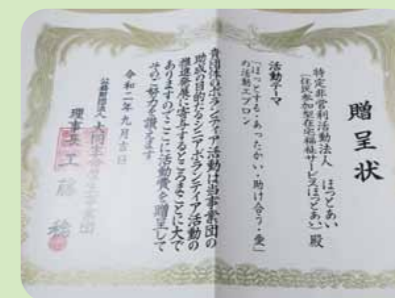 贈呈状
特定非営利活動法人 ほっとあい
(住民参加型在宅福祉サービスほっとあい) 殿
活動テーマ
「ほっとする・あったかい・助け合う・愛」
の活動エプロン
貴団体のボランティア活動は当事業団の
助成の目的たるシニアボランティア活動の
推進発展に寄与するところまことに大で
ありますのでここに活動費を贈呈して
そのご努力を讃えます
令和二年九月吉日
公益財団法人 大同生命厚生事業団
理事長 工藤 稔